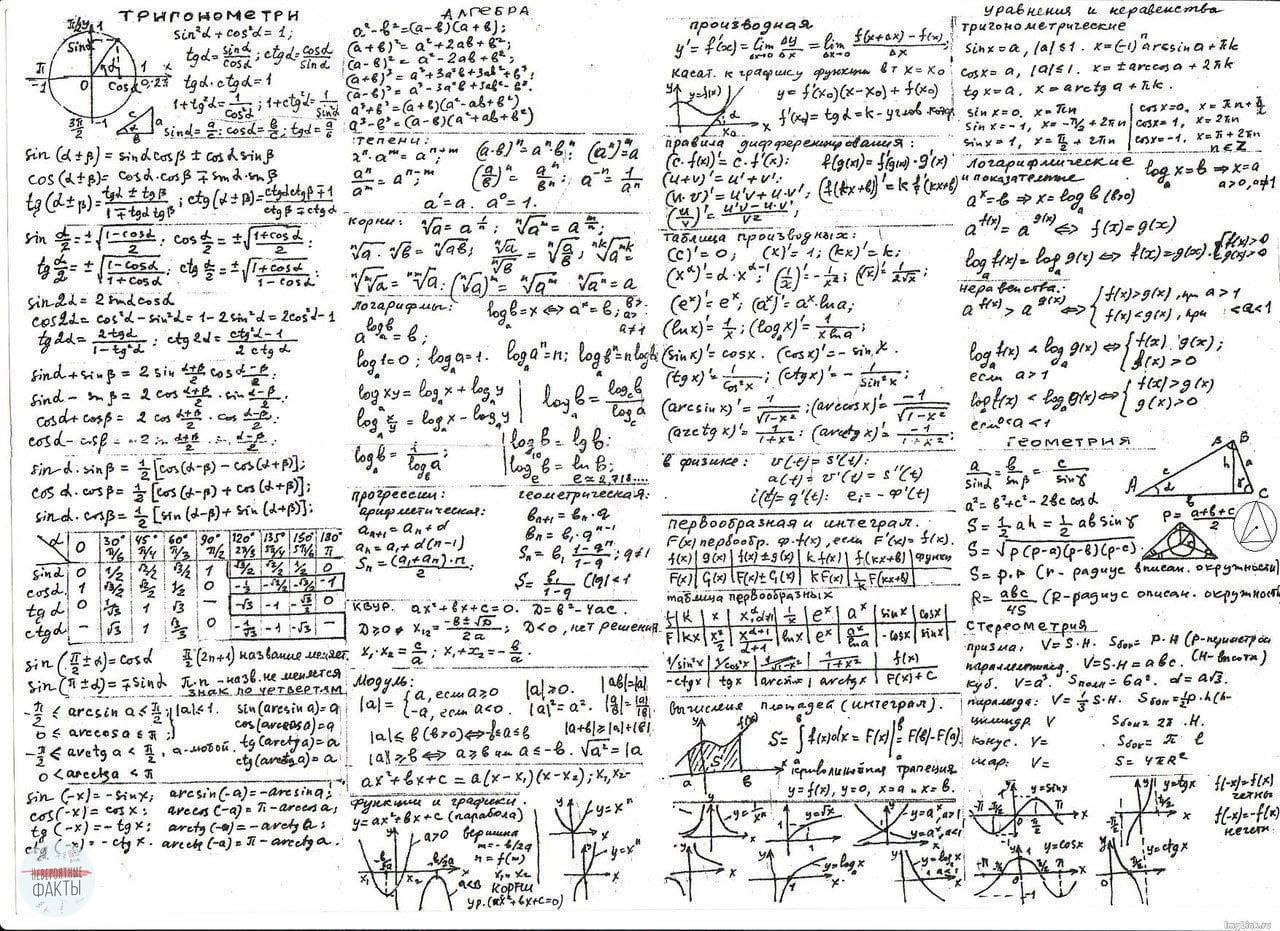 ТРИГОНОМЕТРИ
sin²α + cos²α = 1;
tgα = sinα/cosα; ctgα = cosα/sinα
tgα · ctgα = 1
1+tg²α = 1/cos²α; 1+ctg²α = 1/sin²α
sinα = a/c; cosα = b/c; tgα = a/b
sin(α±β) = sinα cosβ ± cosα sinβ
cos(α±β) = cosα·cosβ ∓ sinα·sinβ
tg(α±β) = (tgα ± tgβ)/(1 ∓ tgα tgβ); ctg(α±β) = (ctgα ctgβ ∓ 1)/(ctgβ ± ctgα)
sin α/2 = ±√((1−cosα)/2); cos α/2 = ±√((1+cosα)/2);
tg α/2 = ±√((1−cosα)/(1+cosα)); ctg α/2 = ±√((1+cosα)/(1−cosα))
sin2α = 2 sinα cosα
cos2α = cos²α − sin²α = 1 − 2 sin²α = 2cos²α − 1
tg2α = 2tgα/(1−tg²α); ctg2α = (ctg²α − 1)/(2 ctgα)
sinα + sinβ = 2 sin (α+β)/2 cos (α−β)/2;
sinα − sinβ = 2 cos (α+β)/2 · sin (α−β)/2
cosα + cosβ = 2 cos (α+β)/2 · cos (α−β)/2
cosα − cosβ = −2 sin (α+β)/2 · sin (α−β)/2
sinα·sinβ = 1/2 [cos(α−β) − cos(α+β)];
cosα·cosβ = 1/2 [cos(α−β) + cos(α+β)];
sinα·cosβ = 1/2 [sin(α−β) + sin(α+β)];
α 0 30° π/6 45° π/4 60° π/3 90° π/2 120° 2π/3 135° 3π/4 150° 5π/6 180° π
sinα 0 1/2 √2/2 √3/2 1 √3/2 √2/2 1/2 0
cosα 1 √3/2 √2/2 1/2 0 −1/2 −√2/2 −√3/2 −1
tgα 0 1/√3 1 √3 — −√3 −1 −√3/3 0
ctgα — √3 1 √3/3 0 −1/√3 −1 −√3 —
sin(π/2 ± α) = cosα π/2 (2n+1) название меняет
sin(π ± α) = ∓sinα π·n - назв. не меняется
знак по четвертям
−π/2 ≤ arcsin a ≤ π/2; |a| ≤ 1. sin(arcsin a) = a
0 ≤ arccos a ≤ π; cos(arccos a) = a
−π/2 ≤ arctg a < π/2, а-любой. tg(arctg a) = a
0 < arcctg a < π ctg(arctg a) = a
sin(−x) = −sinx; arcsin(−a) = −arcsin a;
cos(−x) = cosx; arccos(−a) = π − arccos a;
tg(−x) = −tgx; arctg(−a) = −arctg a;
ctg(−x) = −ctgx. arcctg(−a) = π − arcctg a.
НЕВЕРОЯТНЫЕ
ФАКТЫ
АЛГЕБРА
a² − b² = (a−b)(a+b);
(a+b)² = a² + 2ab + b²;
(a−b)² = a² − 2ab + b²;
(a+b)³ = a³ + 3a²b + 3ab² + b³;
(a−b)³ = a³ − 3a²b + 3ab² − b³.
a³+b³ = (a+b)(a² − ab + b²)
a³−b³ = (a−b)(a² + ab + b²)
тепени:
aⁿ·aᵐ = aⁿ⁺ᵐ (a·b)ⁿ = aⁿbⁿ;
aⁿ/aᵐ = aⁿ⁻ᵐ; (a/b)ⁿ = aⁿ/bⁿ; a⁻ⁿ = 1/aⁿ
a¹ = a. a⁰ = 1.
корни: ⁿ√a = a^(1/n); ⁿ√aᵐ = a^(m/n);
ⁿ√a · ⁿ√b = ⁿ√ab; ⁿ√a/ⁿ√b = ⁿ√(a/b); ⁿᵏ√aᵐᵏ =
ⁿ√ᵐ√a = ⁿᵐ√a; (ⁿ√a)ᵐ = ⁿ√aᵐ ⁿ√aⁿ = a
логарифмы: logₐb = x ⇔ aˣ = b; b> a> a≠1
a^(logₐb) = b;
logₐ1 = 0; logₐa = 1. logₐaⁿ = n; logₐbⁿ = n logₐb
logₐxy = logₐx + logₐy
logₐ x/y = logₐx − logₐy
logₐb = log_c b/log_c a
logₐb = 1/log_b a
log₁₀b = lg b;
log_e b = ln b;
e ≈ 2,718....
прогрессии: геометрическая:
арифметическая: bₙ₊₁ = bₙ·q
aₙ₊₁ = aₙ + d bₙ = b₁·qⁿ⁻¹
aₙ = a₁ + d(n−1) Sₙ = b₁ (1−qⁿ)/(1−q); q≠1
Sₙ = (a₁+aₙ)·n/2 S = b₁/(1−q) |q|<1
КВУР. ax² + bx + c = 0. D = b² − 4ac.
D ≥ 0 x₁₂ = (−b±√D)/2a; D<0, нет решения.
x₁·x₂ = c/a; x₁+x₂ = −b/a.
Модуль:
|a| = {a, если a≥0
−a, если a<0.
|a| ≥ 0. |ab| = |a|
|a|² = a². |a/b| = |a|/|b|
|a| ≤ b (b>0) ⇔ −b ≤ a ≤ b |a+b| ≥ |a|+|b|
|a| ≥ b ⇔ a ≥ b или a ≤ −b. √a² = |a
ax² + bx + c = a(x−x₁)(x−x₂); x₁,x₂-
функции и графики.
y = ax² + bx + c (парабола)
a>0 вершина
m = −b/2a
n = f(m)
a<0 корни
ур. (ax²+bx+c=0)
y=xⁿ
y=xⁿ
производная
y' = f'(x) = lim Δx→0 Δy/Δx = lim Δx→0 (f(x+Δx) − f(x))/Δx;
касат. к графику функции в т x = x₀
y=f(x) y = f'(x₀)(x−x₀) + f(x₀)
f'(x₀) = tgα = k - углов. коэф.
правила дифференцирования:
(c·f(x))' = c·f'(x); f(g(x))' = f'(g(x))·g'(x)
(u+v)' = u' + v';
(u·v)' = u'v + u·v'; (f(kx+b))' = k f'(kx+b)
(u/v)' = (u'v − u·v')/v²;
таблица производных:
(c)' = 0; (x)' = 1; (kx)' = k;
(x^α)' = α·x^(α−1); (1/x)' = −1/x²; (√x)' = 1/(2√x);
(eˣ)' = eˣ; (aˣ)' = aˣ·ln a;
(ln x)' = 1/x; (logₐx)' = 1/(x ln a)
(sin x)' = cos x. (cos x)' = −sin x.
(tg x)' = 1/cos²x; (ctg x)' = −1/sin²x;
(arcsin x)' = 1/√(1−x²); (arccos x)' = −1/√(1−x²)
(arctg x)' = 1/(1+x²); (arcctg x)' = −1/(1+x²);
в физике: v(t) = s'(t);
a(t) = v'(t) = s''(t)
i(t) = q'(t); eᵢ = −Φ'(t)
первообразная и интеграл.
F(x) первообр. ф. f(x), если F'(x) = f(x).
f(x) g(x) f(x)±g(x) k f(x) f(kx+b) функц
F(x) G(x) F(x)±G(x) k F(x) 1/k F(kx+b)
таблица первообразных
f k x x^α, α≠1 1/x eˣ aˣ sinx cosx
F kx x²/2 x^(α+1)/(α+1) lnx eˣ aˣ/ln a −cosx sinx
1/sin²x 1/cos²x 1/√(1−x²) 1/(1+x²) f(x)
−ctgx tgx arcsinx arctgx F(x)+C
вычисление площадей (интеграл).
S = ∫ₐᵇ f(x)dx = F(x)|ₐᵇ = F(b)−F(a).
криволинейная трапеция
y = f(x), y = 0, x = a и x = b.
y=√x
y=aˣ, a>1
y=aˣ, a<1
y=logₐx
y=logₐx
a<1
уравнения и неравенства
тригонометрические
sinx = a, |a| ≤ 1. x = (−1)ⁿ arcsin a + πk
cosx = a, |a| ≤ 1. x = ± arccos a + 2πk
tgx = a, x = arctg a + πk.
sinx = 0, x = πn cosx = 0, x = πn + π/2
sinx = −1, x = −π/2 + 2πn cosx = 1, x = 2πn
sinx = 1, x = π/2 + 2πn cosx = −1, x = π + 2πn
n∈Z
логарифмические
и показательные
logₐx = b ⇒ x = a
a>0, a≠1
aˣ = b ⇒ x = logₐb (b>0)
a^f(x) = a^g(x) ⇔ f(x) = g(x)
logₐf(x) = logₐg(x) ⇔ f(x) = g(x). f(x)>0 g(x)>0
неравенства:
a^f(x) > a^g(x) ⇔ {f(x)>g(x), при a>1
f(x)<g(x), при <a<1
logₐf(x) < logₐg(x) ⇔ {f(x) g(x);
если a>1 f(x) > 0
logₐf(x) < logₐg(x) ⇔ {f(x) > g(x)
если <a<1 g(x) > 0
ГЕОМЕТРИЯ
a/sinα = b/sinβ = c/sinγ
a² = b² + c² − 2bc cosα
S = 1/2 ah = 1/2 ab sinγ P = (a+b+c)/2
S = √(p(p−a)(p−b)(p−c))
S = p·r (r - радиус вписан. окружности)
R = abc/4S (R-радиус описан. окружность
Стереометрия
призма: V = S·H. Sбок = P·H (P-периметр осн
(H-высота)
параллелепипед V = S·H = abc.
куб. V = a³. Sполн = 6a². d = a√3.
пирамида: V = 1/3 S·H. Sбок = 1/2 p·h
цилиндр V Sбок = 2π ·H.
конус. V= Sбок = π l
шар: V= S = 4πR²
y=sinx
y=tgx
f(−x)=f(x)
четны
f(−x)=−f(x)
нечет.
y=cosx
y=ctgx
ImgLink.ru